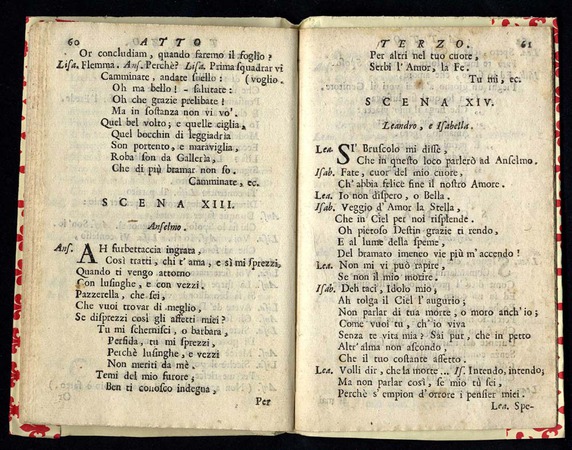 60 ATTO
Or concludiam, quando faremo il foglio?
Lisa. Flemma. Ans. Perchè? Lisa. Prima squadrar vi
Camminate, andate suello: (voglio.
Oh ma bello! - salutate:
Oh che grazie prelibate!
Ma in sostanza non vi vo'.
Quel bel volto; e quelle ciglia,
Quel bocchin di leggiadria
Son portento, e maraviglia,
Roba son da Gallerìa,
Che di più bramar non so.
Camminate, ec.
SCENA XIII.
Anselmo.
Ans. AH furbettaccia ingrata,
Così tratti, chi t'ama, e sì mi sprezzi,
Quando ti vengo attorno
Con lusinghe, e con vezzi.
Pazzerella, che sei,
Che vuoi trovar di meglio,
Se disprezzi così gli affetti miei?
Tu mi schernisci, o barbara,
Perfida, tu mi sprezzi,
Perchè lusinghe, e vezzi
Non meriti da mè.
Temi del mio furore;
Ben ti conosco indegna,
Per
TERZO. 61
Per altri nel tuo cuore,
Serbi l'Amor, la Fe.
Tu mi, ec.
SCENA XIV.
Leandro, e Isabella.
Lea. SI' Bruscolo mi disse,
Che in questo loco parlerò ad Anselmo.
Isab. Fate, cuor del mio cuore,
Ch'abbia felice fine il nostro Amore.
Lea. Io non dispero, o Bella.
Isab. Veggio d'Amor la Stella,
Che in Ciel per noi risplende.
Oh pietoso Destin grazie ti rendo,
E al lume della speme,
Del bramato imeneo vie più m'accendo!
Lea. Non mi vi può rapire,
Se non il mio morire.
Isab. Deh taci, Idolo mio,
Ah tolga il Ciel l'augurio;
Non parlar di tua morte, o moro anch'io;
Come vuoi tu, ch'io viva
Senza te vita mia? Sai put, che in petto
Altr'alma non ascondo,
Che il tuo costante affetto.
Lea. Volli dir, che la morte... Is. Intendo, intendo;
Ma non parlar così, se mio tu sei,
Perchè s'empion d'orrore i pensier miei.
Lea. Spe-